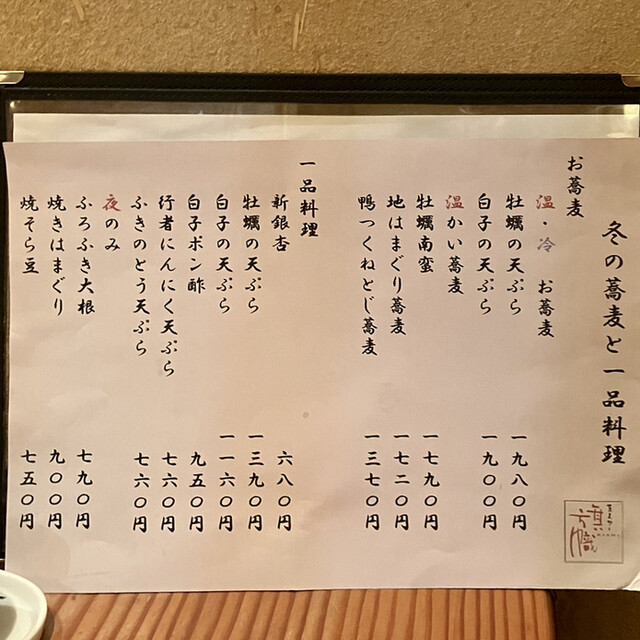 冬の蕎麦と一品料理
お蕎麦
温・冷 お蕎麦
牡蠣の天ぷら 一九八〇円
白子の天ぷら 一九〇〇円
温かい蕎麦
牡蠣南蛮 一七九〇円
地はまぐり蕎麦 一七二〇円
鴨つくねとじ蕎麦 一三七〇円
一品料理
新銀杏 六八〇円
牡蠣の天ぷら 一三九〇円
白子の天ぷら 一一六〇円
白子ポン酢 九五〇円
行者にんにく天ぷら 七六〇円
ふきのとう天ぷら 七六〇円
夜のみ
ふろふき大根 七九〇円
焼きはまぐり 九〇〇円
焼そら豆 七五〇円